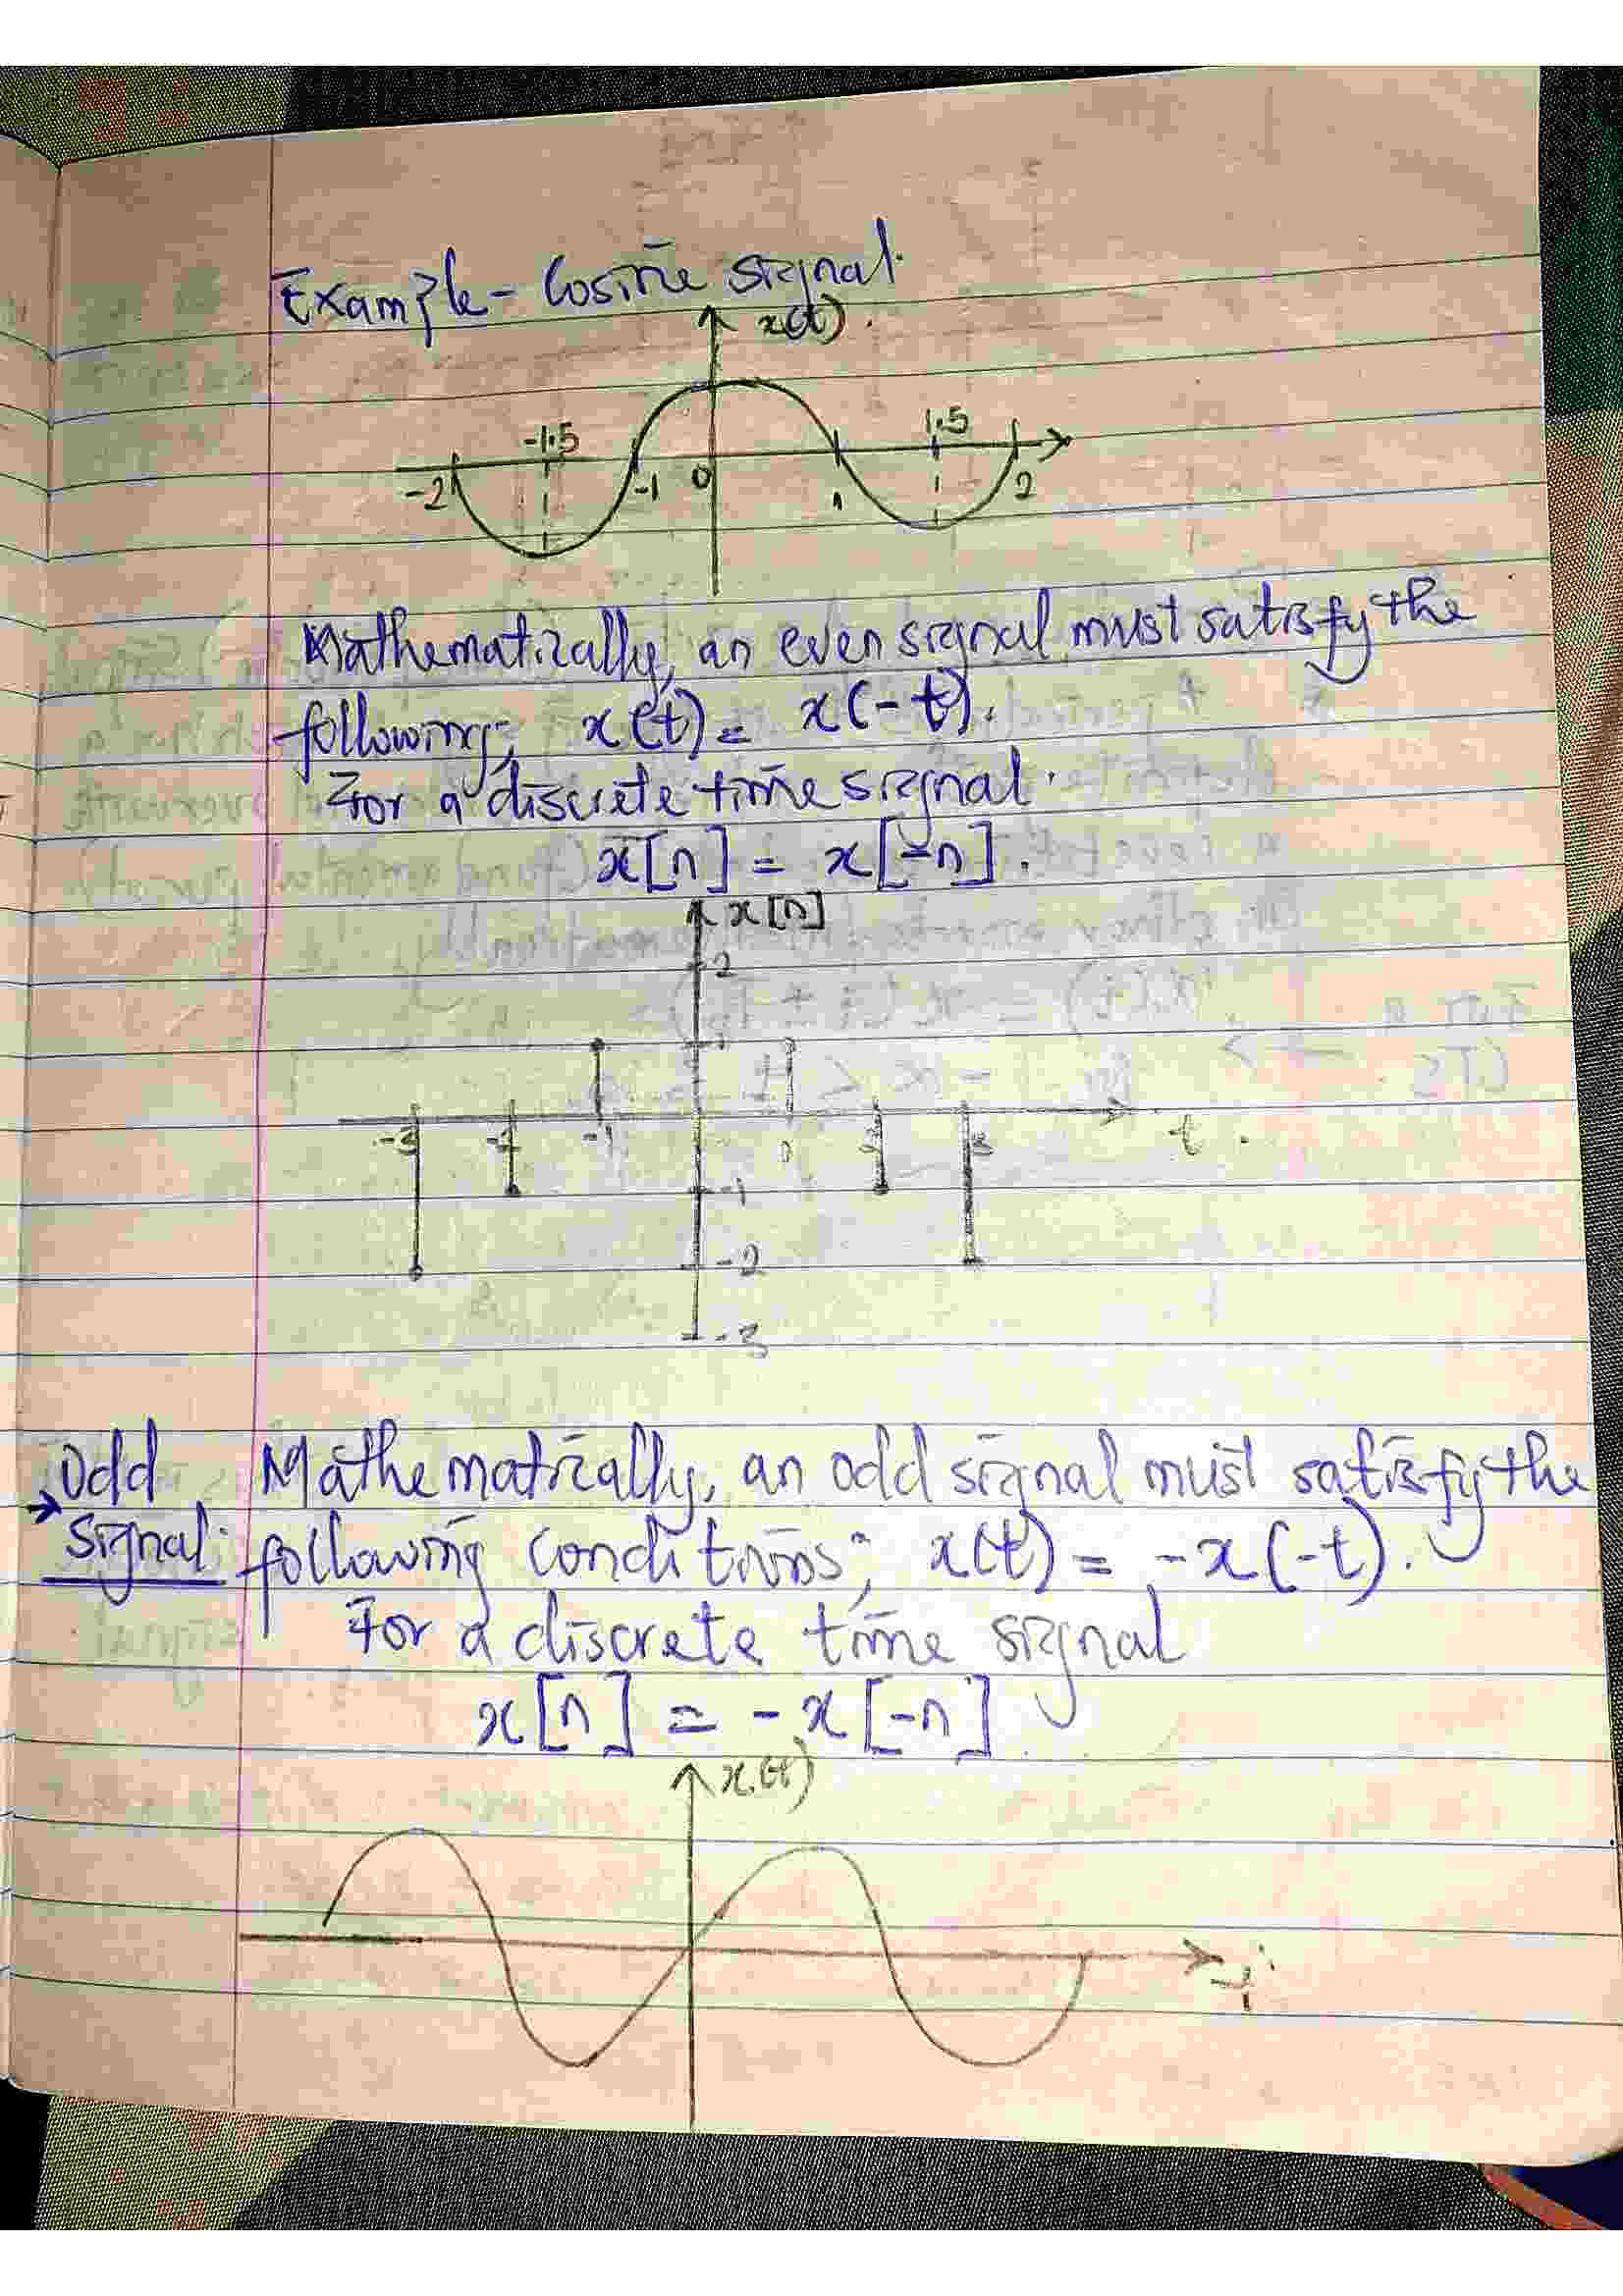 Example - Cosine signal.
x(t).
-1.5 1.5
-2 -1 0 1 2
Mathematically, an even signal must satisfy the
following; x(t) = x(-t).
For a discrete time signal.
x[n] = x[-n].
x[n]
2
1
-3 -2 -1 2 3 t.
-1
-2
-3
Odd Mathematically, an odd signal must satisfy the
→ signal: following conditions; x(t) = -x(-t).
For a discrete time signal
x[n] = -x[-n]
x(t)
t